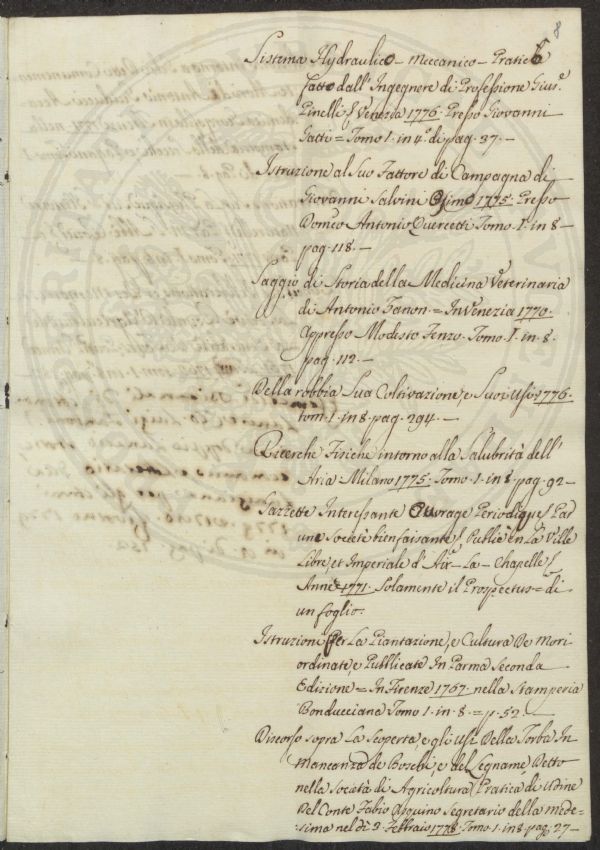 8
Sistema Hydraulico - Meccanico - Pratico
fatto dall' Ingegnere di Professione Gius.e
Pinelli / Venezia 1776. Presso Giovanni
Gatti = Tomo 1. in 4.o di pag. 37. —
Istruzione al Suo Fattore di Campagna di
Giovanni Salvini Osimo 1775. Presso
Domco Antonio Quercetti Tomo 1. in 8 —
pag. 118. —
Saggio di Storia della Medicina Veterinaria
di Antonio Zanon. = In Venezia 1770.
Appresso Modesto Fenzo. Tomo I. in 8.
pag. 112. —
Della robbia Sua Coltivazione, e Suoi Usi, 1776.
tom. 1. in 8. pag. 294. —
Ricerche Fisiche intorno alla Salubrità dell'
Aria Milano 1775. Tomo. 1. in 8. pag. 92 —
Gazzette Interessante Ouvrage Periodique / Par
une Societè bien faisante / Publiè en La Ville
Libre, et Imperiale d' Aix - La - Chapelle /
Annèe 1771. Solamente il Prospectus = di
un foglio.
Istruzioni Per La Piantazione, e Cultura De Mori
ordinate, e Pubblicate In Parma Seconda
Edizione = In Firenze 1767. nella Stamperia
Bonducciana Tomo 1. in 8. = p. 52. —
Discorso sopra La Scoperta, e gli Usi Della Torba In
Mancanza de Boschi, e del Legname, Detto
nella Società di Agricoltura Pratica di Udine
Del Conte Fabio Asquino Segretario della mede=
sima nel dì 9. Febbraio 1778. Tomo. 1. in 8. pag. 27 —